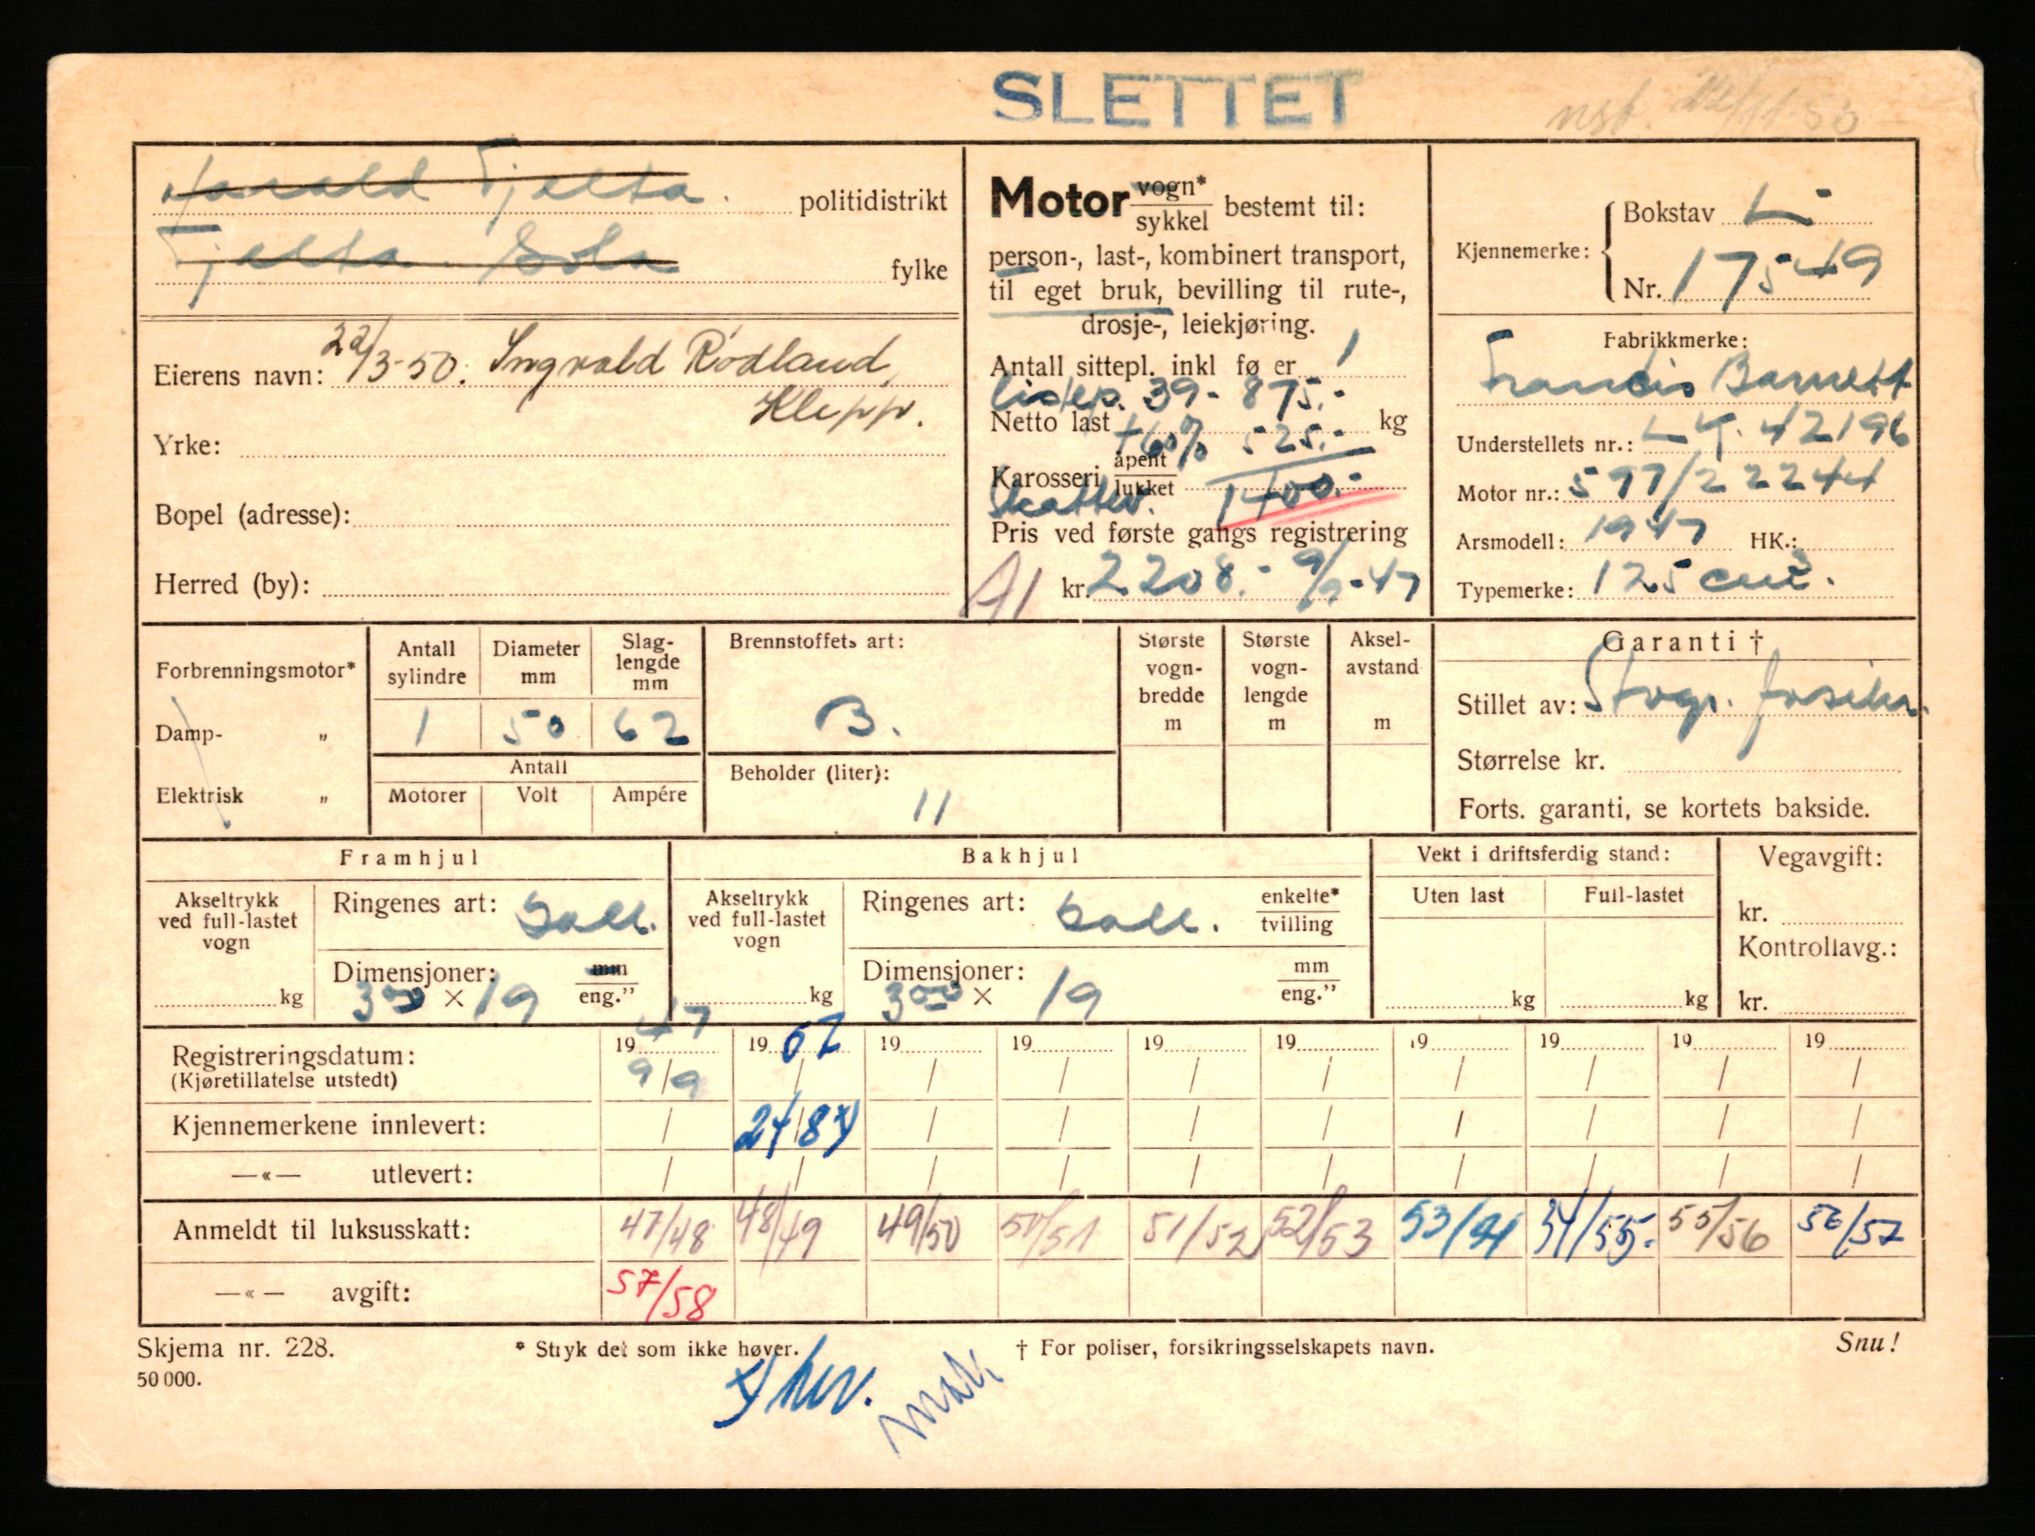 SLETTET
Harald Fjelta. politidistrikt
Fjelta. Sola fylke
Eierens navn: 22/3-50. Ingvald Rødland,
Klepp.
Yrke:
Bopel (adresse):
Herred (by):
Motor vogn*/sykkel bestemt til:
person-, last-, kombinert transport,
til eget bruk, bevilling til rute-,
drosje-, leiekjøring.
Antall sittepl. inkl fø er 1
listep. 39 - 875.-
Netto last +60% 525.- kg
Karosseri åpent/lukket
Skattev. 1400.-
Pris ved første gangs registrering
A1 kr. 2208.- 9/9-47
Kjennemerke: Bokstav L-
Nr. 17549
Fabrikkmerke:
Francis Barnett
Understellets nr.: L4. 42196
Motor nr.: 597/22244
Arsmodell: 1947 HK.:
Typemerke: 125 cm².
Forbrenningsmotor*
Damp- „
Elektrisk „
Antall sylindre
Diameter mm
Slag-lengde mm
1 50 62
Antall
Motorer Volt Ampére
Brennstoffets art:
B.
Beholder (liter):
11
Største vogn-bredde m
Største vogn-lengde m
Aksel-avstand m
Garanti †
Stillet av: Stvgr. forsikr.
Størrelse kr.
Forts. garanti, se kortets bakside.
Framhjul
Akseltrykk ved full-lastet vogn
kg
Ringenes art: Ball.
Dimensjoner: mm/eng."
3.00 × 19
Bakhjul
Akseltrykk ved full-lastet vogn
kg
Ringenes art: Ball. enkelte*/tvilling
Dimensjoner: mm/eng."
3.00 × 19
Vekt i driftsferdig stand:
Uten last Full-lastet
kg kg
Vegavgift:
kr.
Kontrollavg.:
kr.
Registreringsdatum: 1947 1957 19 19 19 19 19 19 19 19
(Kjøretillatelse utstedt) 9/9 / / / / / / / / /
Kjennemerkene innlevert: / 24/8 x) / / / / / / / /
—«— utlevert: / / / / / / / / / /
Anmeldt til luksusskatt: 47/48 48/49 49/50 50/51 51/52 52/53 53/54 54/55. 55/56 56/57
—«— avgift: 57/58
Skjema nr. 228.
* Stryk det som ikke høver.
† For poliser, forsikringsselskapets navn.
Snu!
50 000.